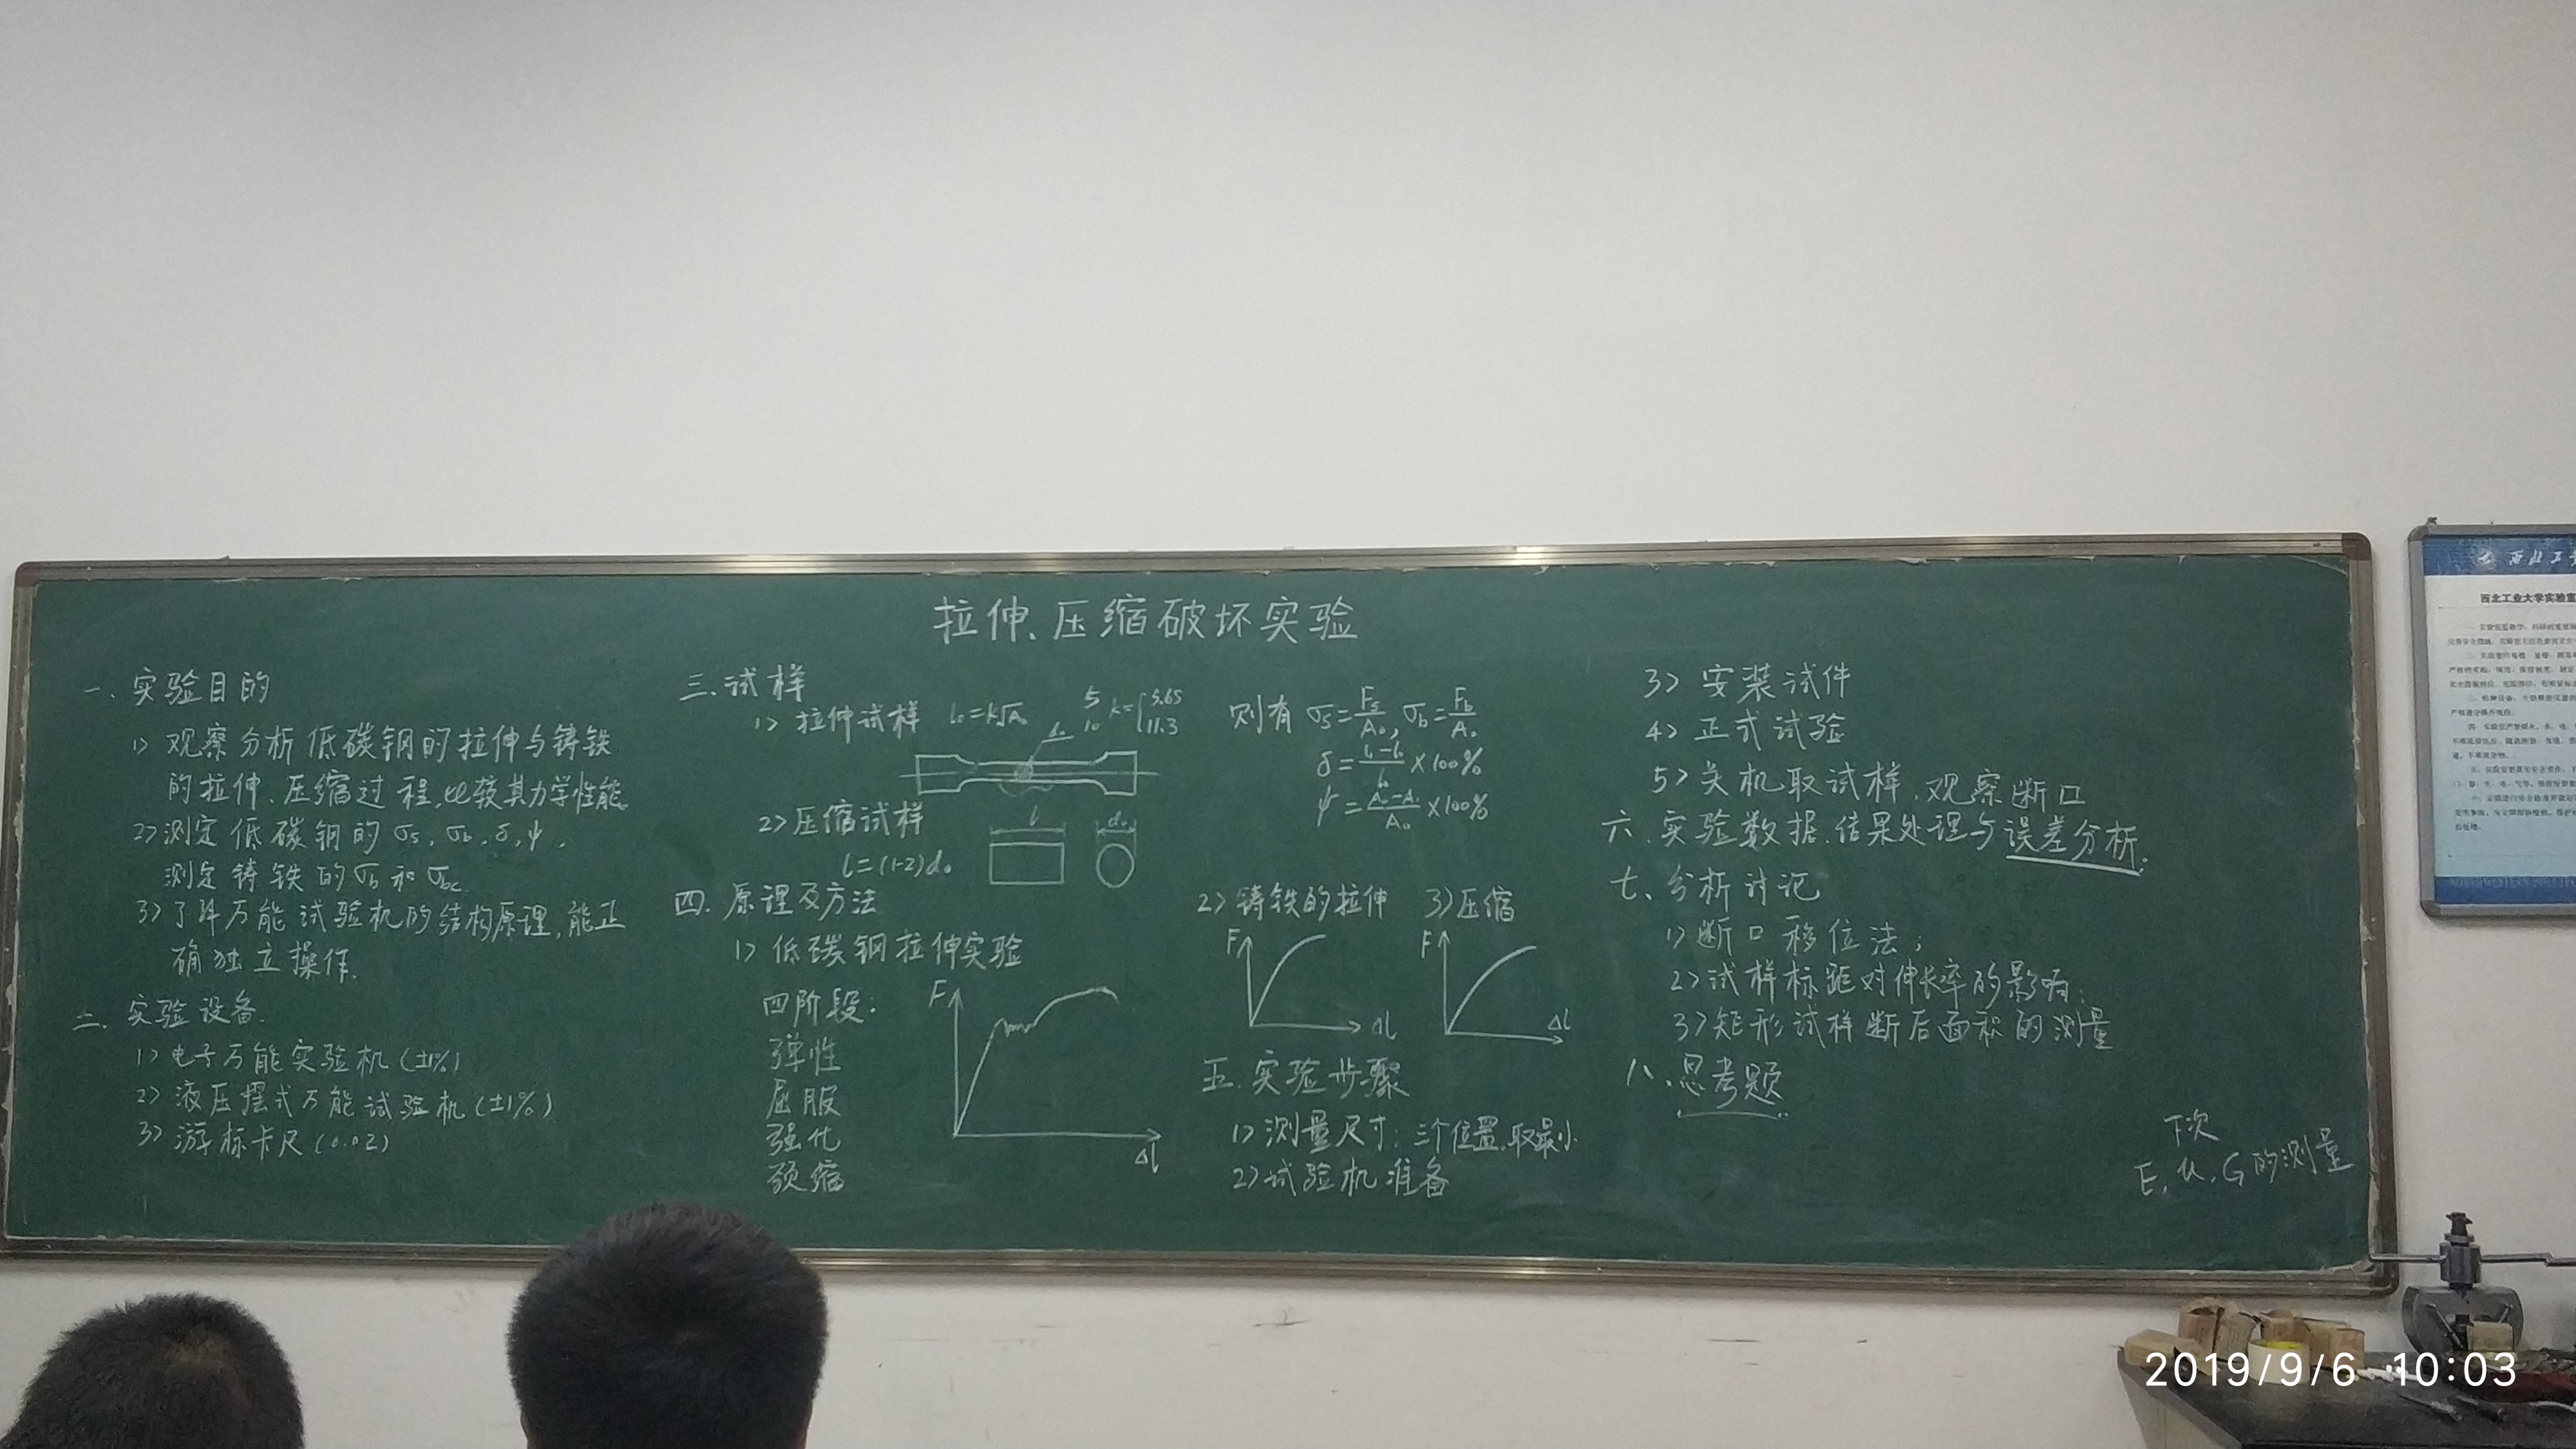 拉伸、压缩破坏实验
一、实验目的
1) 观察分析低碳钢的拉伸与铸铁
的拉伸、压缩过程,比较其力学性能
2) 测定低碳钢的σs, σb, δ, ψ,
测定铸铁的σb和σbc
3) 了解万能试验机的结构原理,能正
确独立操作.
二、实验设备.
1) 电子万能实验机(±1%)
2) 液压摆式万能试验机(±1%)
3) 游标卡尺(0.02)
三.试样
1) 拉伸试样 l₀=k√A₀ 5 10 k={5.65 11.3
l₀
2) 压缩试样
l d₀
l=(1-2)d₀
四.原理及方法
1) 低碳钢拉伸实验
四阶段:
弹性
屈服
强化
颈缩
F
Δl
则有 σs=Fs/A₀, σb=Fb/A₀
δ=(l₁-l₀)/l₀×100%
ψ=(A₀-A₁)/A₀×100%
2) 铸铁的拉伸 3) 压缩
F Δl F Δl
五.实验步骤
1) 测量尺寸:三个位置.取最小.
2) 试验机准备
3) 安装试件
4) 正式试验
5) 关机取试样.观察断口
六.实验数据.结果处理与误差分析.
七、分析讨论
1) 断口移位法;
2) 试样标距对伸长率的影响;
3) 矩形试样断后面积的测量
八、思考题
下次
E, μ, G的测量
西北工业大学实验室
2019/9/6 10:03